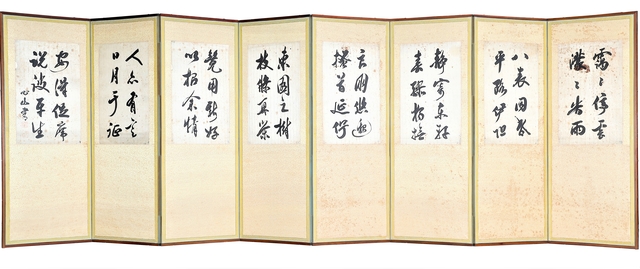 靄〻停雲
濛〻時雨
八表同昏
平路伊阻
靜寄東軒
春醪獨撫
良朋悠邈
搔首延佇
東園之樹
枝條再榮
競用新好
以招余情
人亦有言
日月于征
安得促席
説彼平生